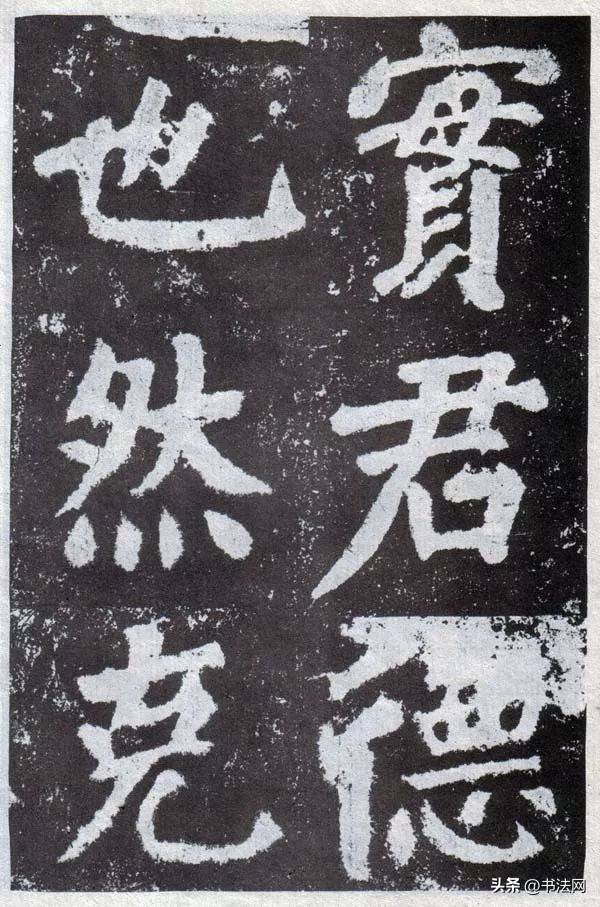 實君德
也然克
头条 @书法网